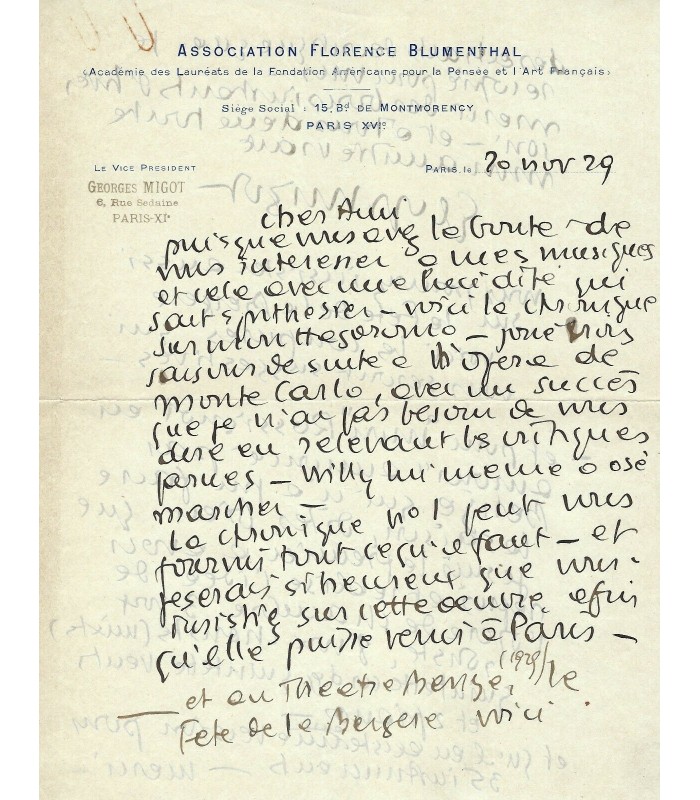 ASSOCIATION FLORENCE BLUMENTHAL
(Académie des Lauréats de la Fondation Américaine pour la Pensée et l'Art Français)
Siège Social : 15, Bd de Montmorency
PARIS XVIe
LE VICE PRESIDENT
GEORGES MIGOT
6, Rue Sedaine
PARIS-XIe
PARIS, le 20 nov 29
Cher Ami
puisque vous avez la bonté de
vous interesser a mes musiques
et cela avec une lucidité qui
sait synthesier – voici la chronique
sur mon Hagoromo – joué trois
saisons de suite a l'opera de
Monte Carlo, avec un succès
que je n'ai pas besoin de vous
dire en relevant les critiques
parues – Willy lui meme a osé
marcher –
La chronique no 1 peut vous
fournir tout ce qu'il faut – et
je serais si heureux que vous
insistiez sur cette oeuvre afin
qu'elle puisse venir à Paris –
– et au Theatre (1929) le
Fete de la Bergere voici